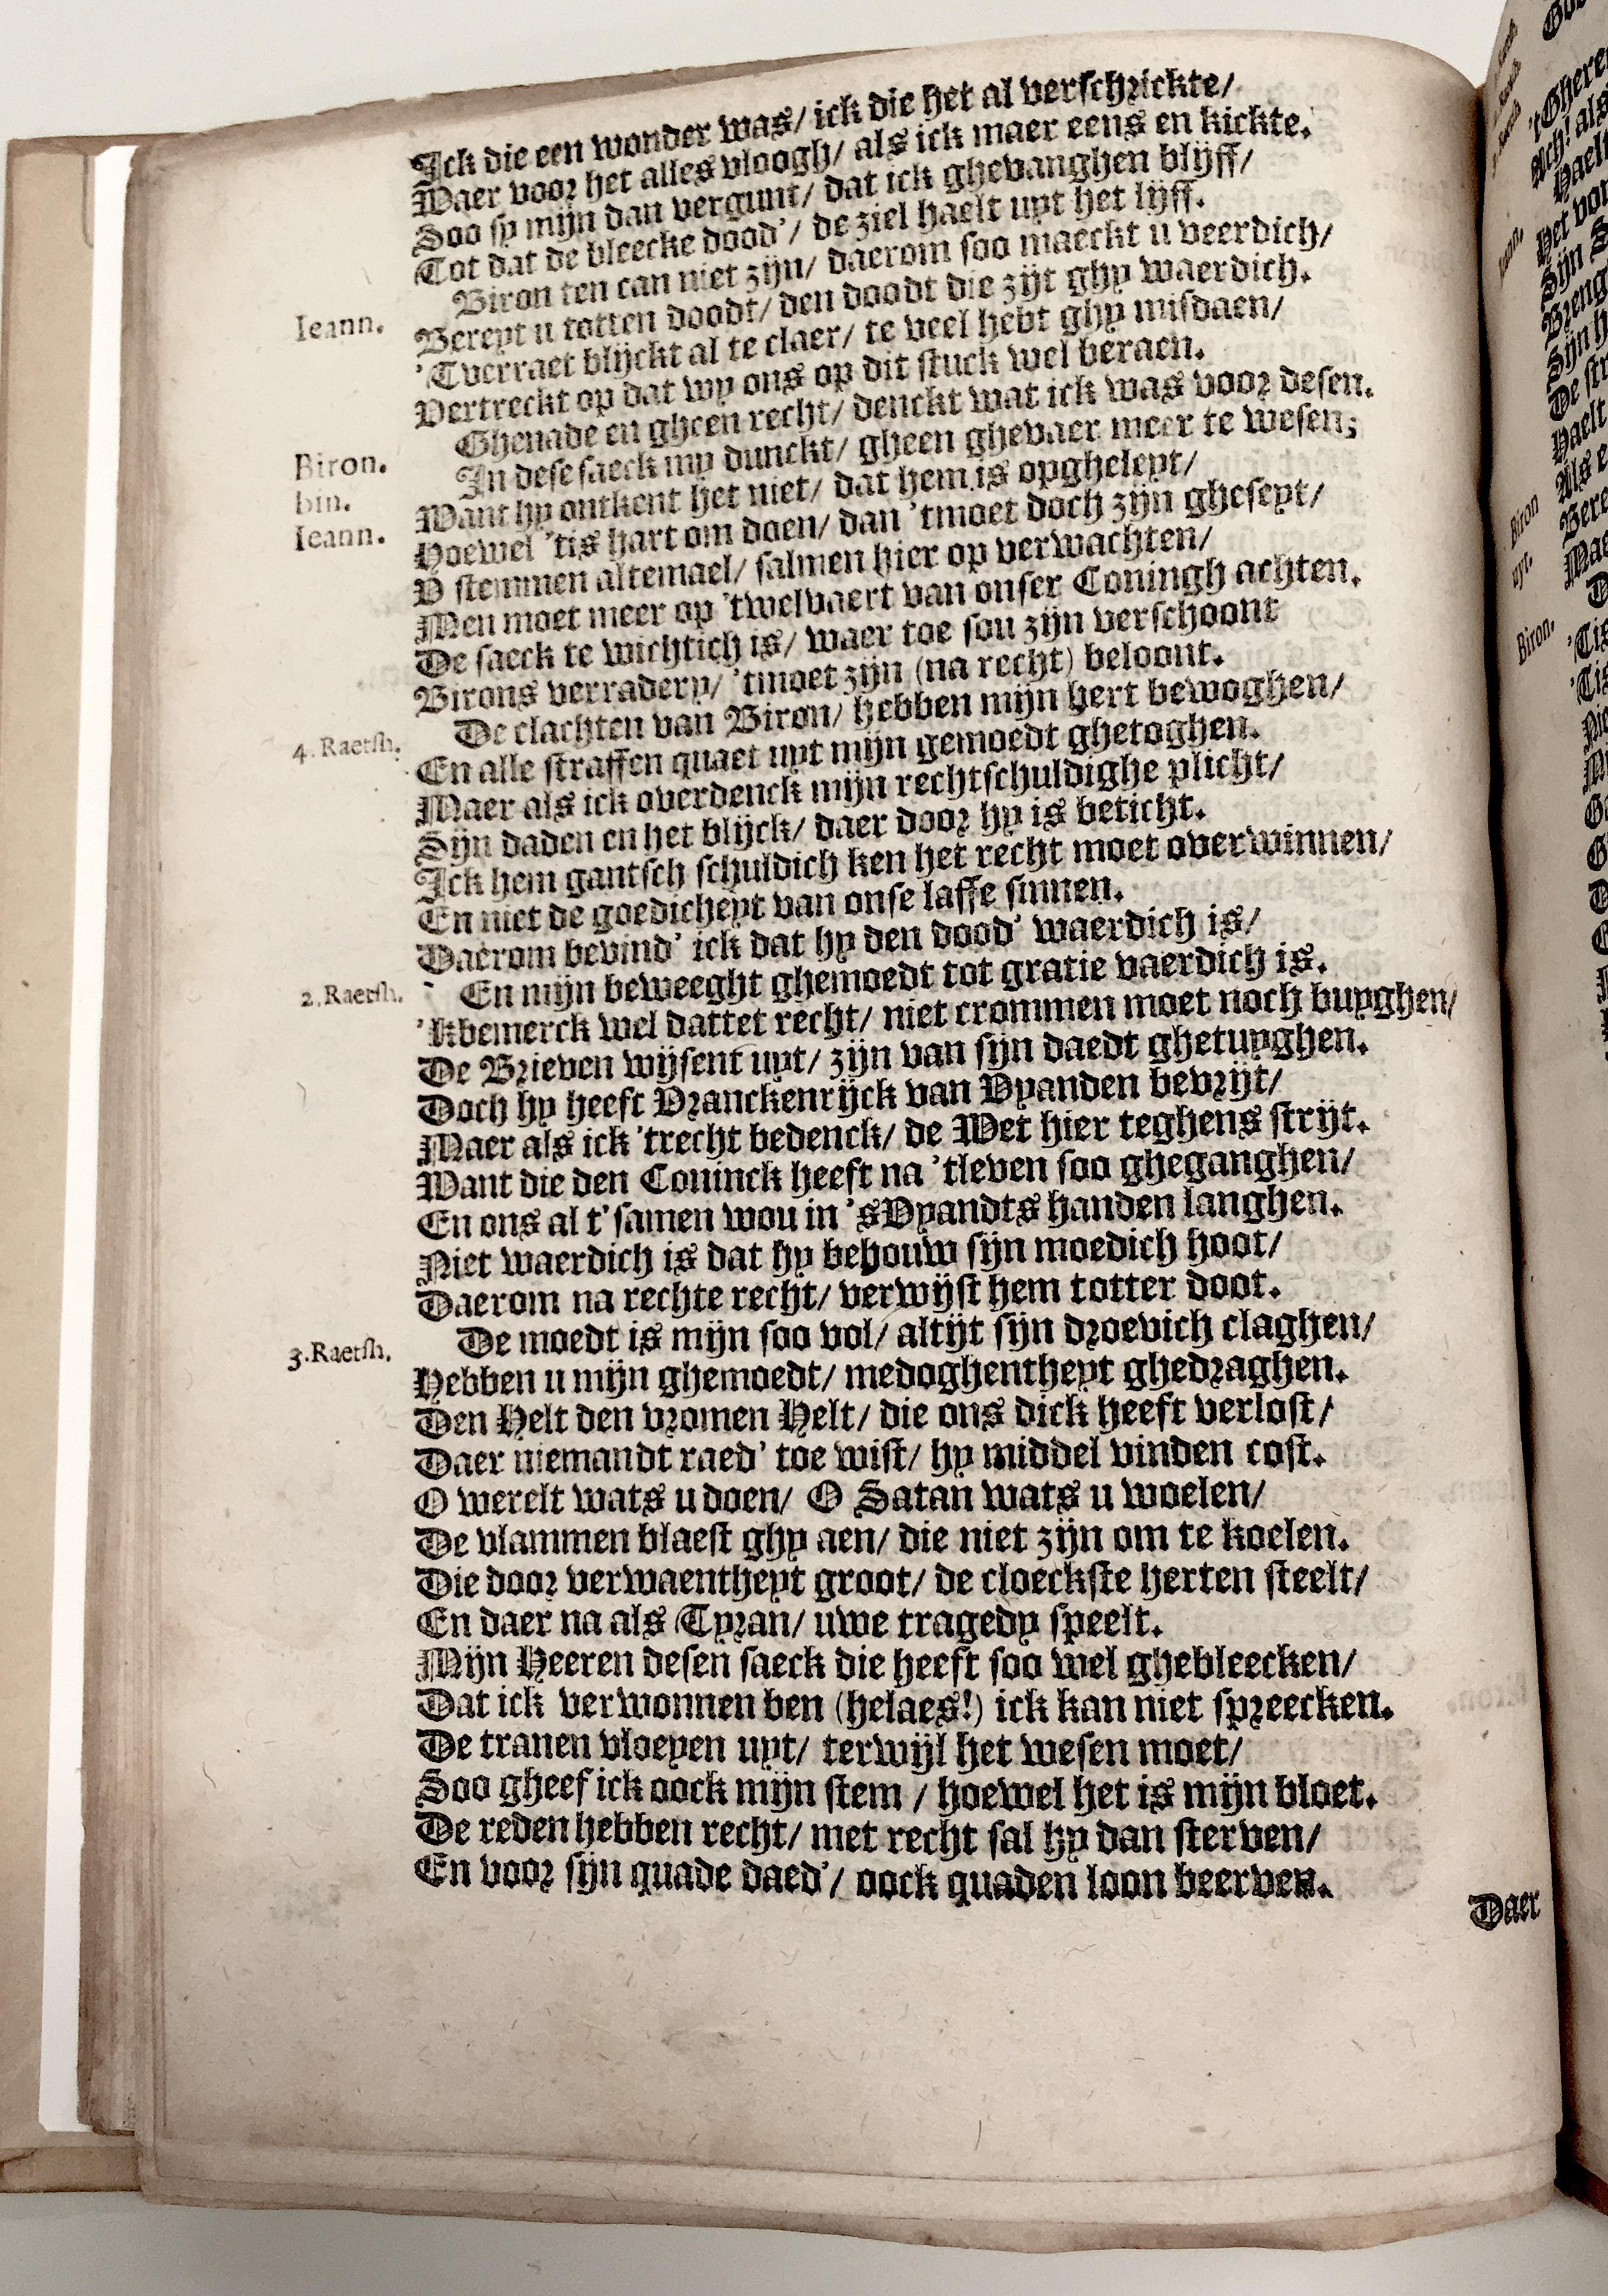 Ick die een wonder was/ ick die het al verschrickte/
Waer voor het alles vloogh/ als ick maer eens en kickte.
Soo sy mijn dan vergunt/ dat ick ghevanghen blijff/
Tot dat de bleecke dood'/ de ziel haelt uyt het lijff.
Ieann. Biron ten can niet zijn/ daerom soo maeckt u veerdich/
Bereyt u totten doodt/ den doodt die zijt ghy waerdich.
'Tverraet blijckt al te claer/ te veel hebt ghy misdaen/
Vertreckt op dat wy ons op dit stuck wel beraen.
Biron. Ghenade en gheen recht/ denckt wat ick was voor desen.
bin.
Ieann. In dese saeck my dunckt/ gheen ghevaer meer te wesen;
Want hy ontkent het niet/ dat hem is opgheleyt/
Hoewel 'tis hart om doen/ dan 'tmoet doch zijn gheseyt/
V stemmen altemael/ salmen hier op verwachten/
Men moet meer op 'twelvaert van onser Coningh achten.
De saeck te wichtich is/ waer toe sou zijn verschoont
Birons verradery/ 'tmoet zijn (na recht) beloont.
4. Raetsh. De clachten van Biron/ hebben mijn hert bewoghen/
En alle straffen quaet uyt mijn gemoedt ghetoghen.
Maer als ick overdenck mijn rechtschuldighe plicht/
Sijn daden en het blijck/ daer door hy is beticht.
Ick hem gantsch schuldich ken het recht moet overwinnen/
En niet de goedicheyt van onse laffe sinnen.
Daerom bevind' ick dat hy den dood' waerdich is/
2. Raetsh. En mijn beweeght ghemoedt tot gratie vaerdich is.
'Kbemerck wel dattet recht/ niet crommen moet noch buyghen/
De Brieven wijsent uyt/ zijn van sijn daedt ghetuyghen.
Doch hy heeft Vranckenrijck van Vyanden bevrijt/
Maer als ick 'trecht bedenck/ de Wet hier teghens strijt.
Want die den Coninck heeft na 'tleven soo gheganghen/
En ons al t'samen wou in 'sVyandts handen langhen.
Niet waerdich is dat hy behouw sijn moedich hoot/
Daerom na rechte recht/ verwijst hem totter doot.
3. Raetsh. De moedt is mijn soo vol/ altijt sijn droevich claghen/
Hebben u mijn ghemoedt/ medoghentheyt ghedraghen.
Den Helt den vromen Helt/ die ons dick heeft verlost/
Daer niemandt raed' toe wist/ hy middel vinden cost.
O werelt wats u doen/ O Satan wats u woelen/
De vlammen blaest ghy aen/ die niet zijn om te koelen.
Die door verwaentheyt groot/ de cloeckste herten steelt/
En daer na als Tyran/ uwe tragedy speelt.
Mijn Heeren desen saeck die heeft soo wel ghebleecken/
Dat ick verwonnen ben (helaes!) ick kan niet spreecken.
De tranen vloeyen uyt/ terwijl het wesen moet/
Soo gheef ick oock mijn stem / hoewel het is mijn bloet.
De reden hebben recht/ met recht sal hy dan sterven/
En voor sijn quade daed'/ oock quaden loon beerven.
Daer